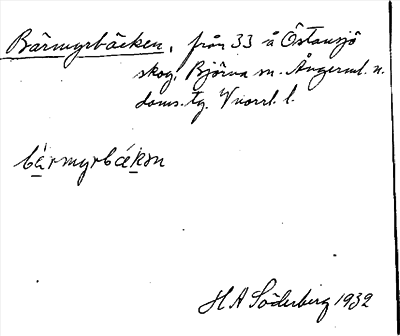 Bärmyrbäcken, från 33 å Östansjö
skog, Björna sn. Ångerml. n.
doms. tg. Vnorrl. l.
bärmyrbäkən
H A Söderberg 1932